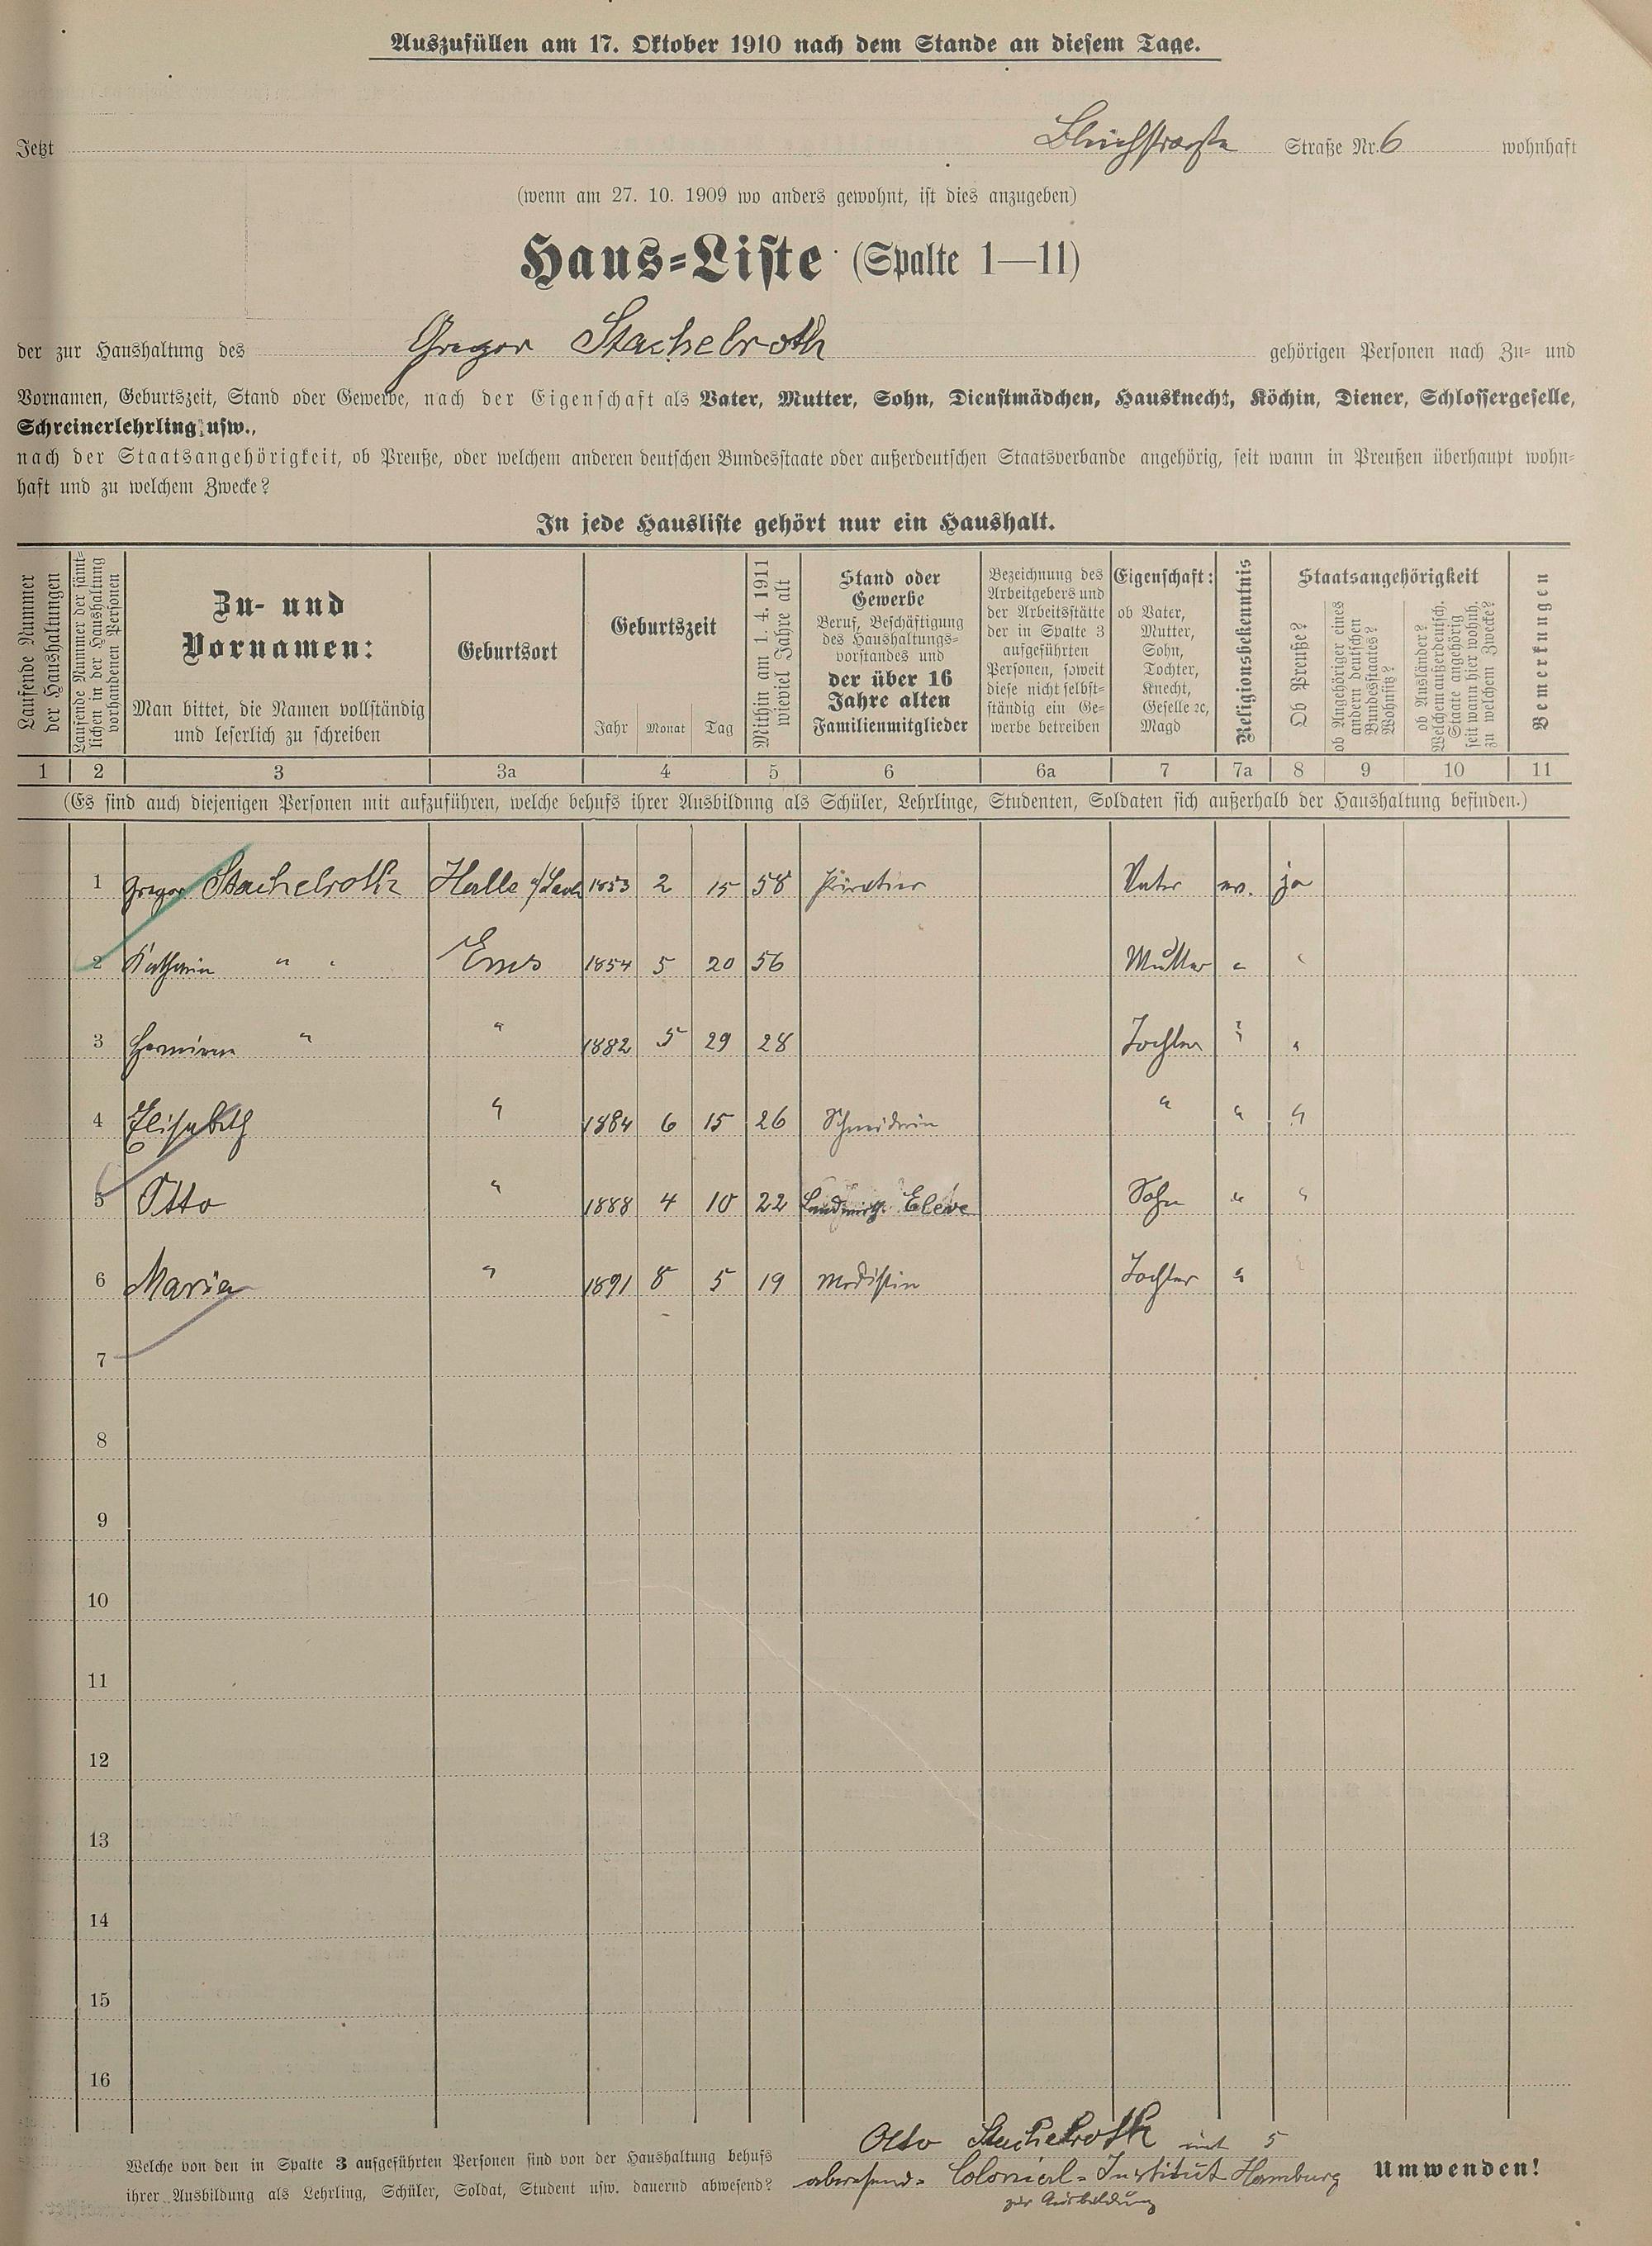 Auszufüllen am 17. Oktober 1910 nach dem Stande an diesem Tage.
Jetzt Bleichstraße Straße Nr. 6 wohnhaft
(wenn am 27. 10. 1909 wo anders gewohnt, ist dies anzugeben)
Haus-Liste (Spalte 1—11)
der zur Haushaltung des Gregor Stachelroth gehörigen Personen nach Zu- und
Vornamen, Geburtszeit, Stand oder Gewerbe, nach der Eigenschaft als Vater, Mutter, Sohn, Dienstmädchen, Hausknecht, Köchin, Diener, Schlossergeselle,
Schreinerlehrling usw.,
nach der Staatsangehörigkeit, ob Preuße, oder welchem anderen deutschen Bundesstaate oder außerdeutschen Staatsverbande angehörig, seit wann in Preußen überhaupt wohn-
haft und zu welchem Zwecke?
In jede Hausliste gehört nur ein Haushalt.
Laufende Nummer
der Haushaltungen
Laufende Nummer der sämt-
lichen in der Haushaltung
vorhandenen Personen
Zu- und
Vornamen:
Man bittet, die Namen vollständig
und leserlich zu schreiben
Geburtsort
Geburtszeit
Jahr Monat Tag
Mithin am 1. 4. 1911
wieviel Jahre alt
Stand oder
Gewerbe
Beruf, Beschäftigung
des Haushaltungs-
vorstandes und
der über 16
Jahre alten
Familienmitglieder
Bezeichnung des
Arbeitgebers und
der Arbeitsstätte
der in Spalte 3
aufgeführten
Personen, soweit
diese nicht selbst-
ständig ein Ge-
werbe betreiben
Eigenschaft:
ob Vater,
Mutter,
Sohn,
Tochter,
Knecht,
Geselle ꝛc,
Magd
Religionsbekenntnis
Staatsangehörigkeit
Ob Preuße?
ob Angehöriger eines
andern deutschen
Bundesstaates?
Wohnsitz?
ob Ausländer?
Welchem außerdeutsch.
Staate angehörig
seit wann hier wohnh.
zu welchem Zwecke?
Bemerkungen
1 2 3 3a 4 5 6 6a 7 7a 8 9 10 11
(Es sind auch diejenigen Personen mit aufzuführen, welche behufs ihrer Ausbildung als Schüler, Lehrlinge, Studenten, Soldaten sich außerhalb der Haushaltung befinden.)
1 Gregor Stachelroth Halle a/Saale 1853 2 15 58 Privatier Vater ev. ja
2 Katharin " " Ems 1854 5 20 56 Mutter " "
3 Hermine " " 1882 5 29 28 Tochter " "
4 Elisabeth " 1884 6 15 26 Schneiderin " " "
5 Otto " 1888 4 10 22 Landwirth. Eleve Sohn " "
6 Maria " 1891 8 5 19 Modistin Tochter "
7
8
9
10
11
12
13
14
15
16
Welche von den in Spalte 3 aufgeführten Personen sind von der Haushaltung behufs
ihrer Ausbildung als Lehrling, Schüler, Soldat, Student usw. dauernd abwesend?
Otto Stachelroth 5
abwesend = Colonial-Institut Hamburg
zur Ausbildung
Umwenden!